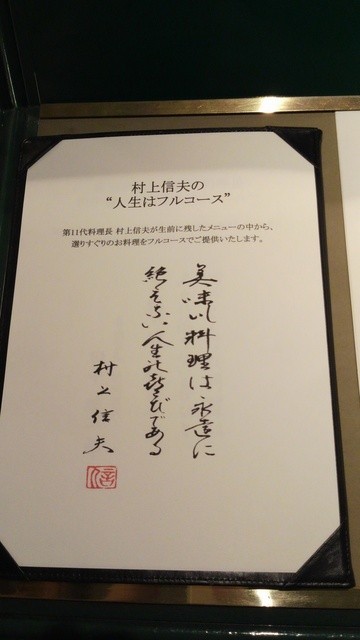 村上信夫の
“人生はフルコース”
第11代料理長 村上信夫が生前に残したメニューの中から、
選りすぐりのお料理をフルコースでご提供いたします。
美味しい料理は永遠に
絶えない人生の喜びである
村上信夫